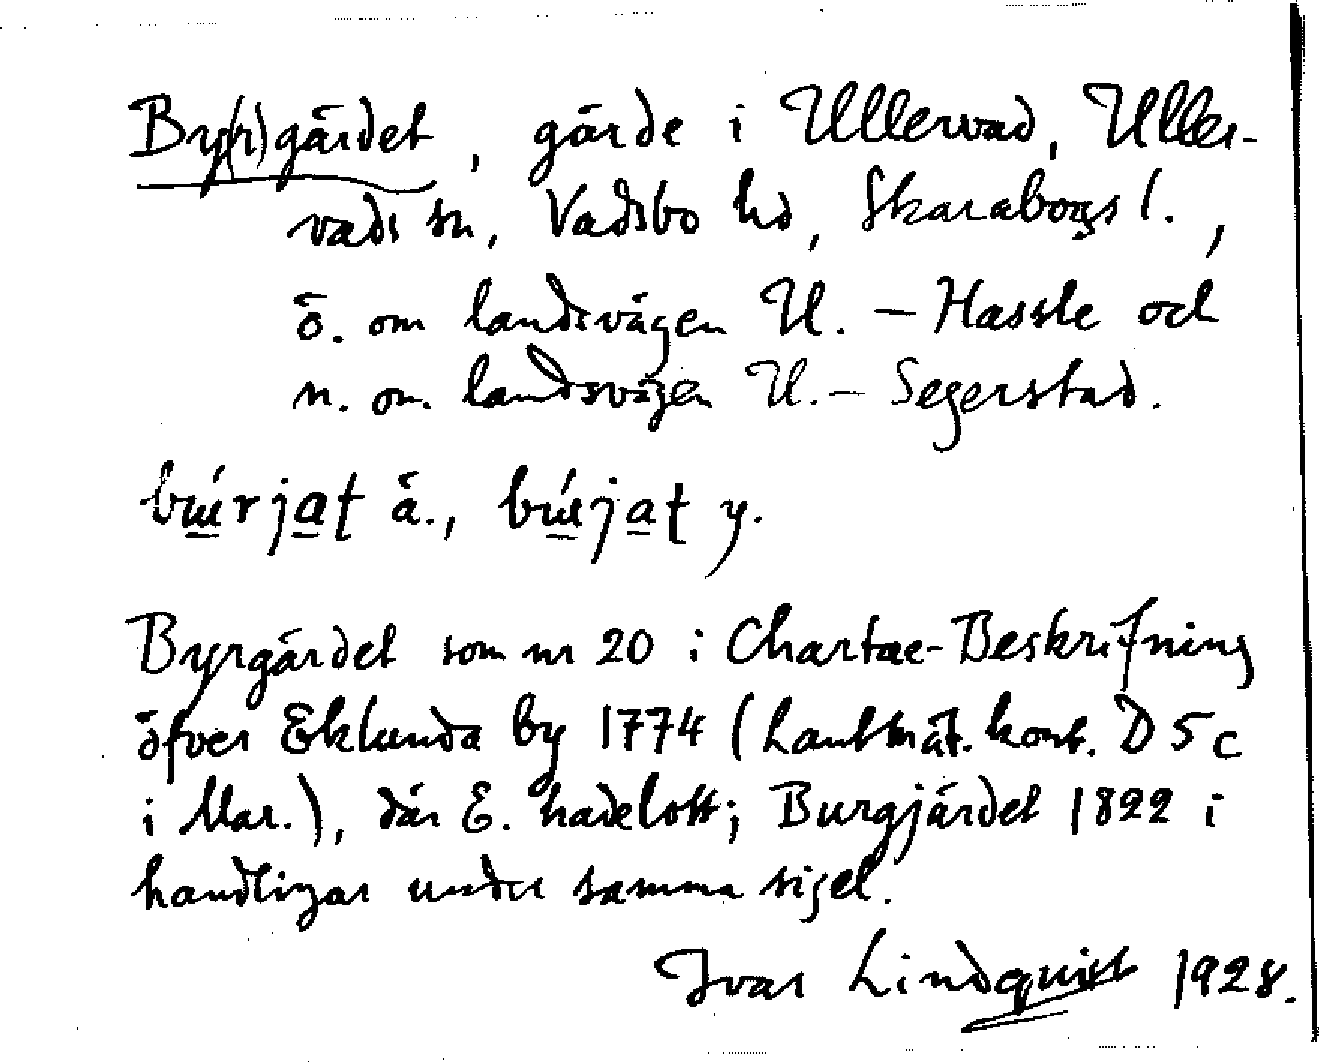 By(r)gärdet, gärde i Ullervad, Uller-
vads sn, Vadsbo hd, Skaraborgs l.,
ö. om landsvägen U. – Hassle och
n. om landsvägen U. – Segerstad.
búrjat ä., bújat y.
Byrgärdet som nr 20 i Chartae-Beskrifning
öfver Eklunda by 1774 (Lantmät. kont. D 5 c
i Mar.), där E. hade lott; Burgjärdet 1822 i
handlingar under samma sigel.
Ivar Lindquist 1928.